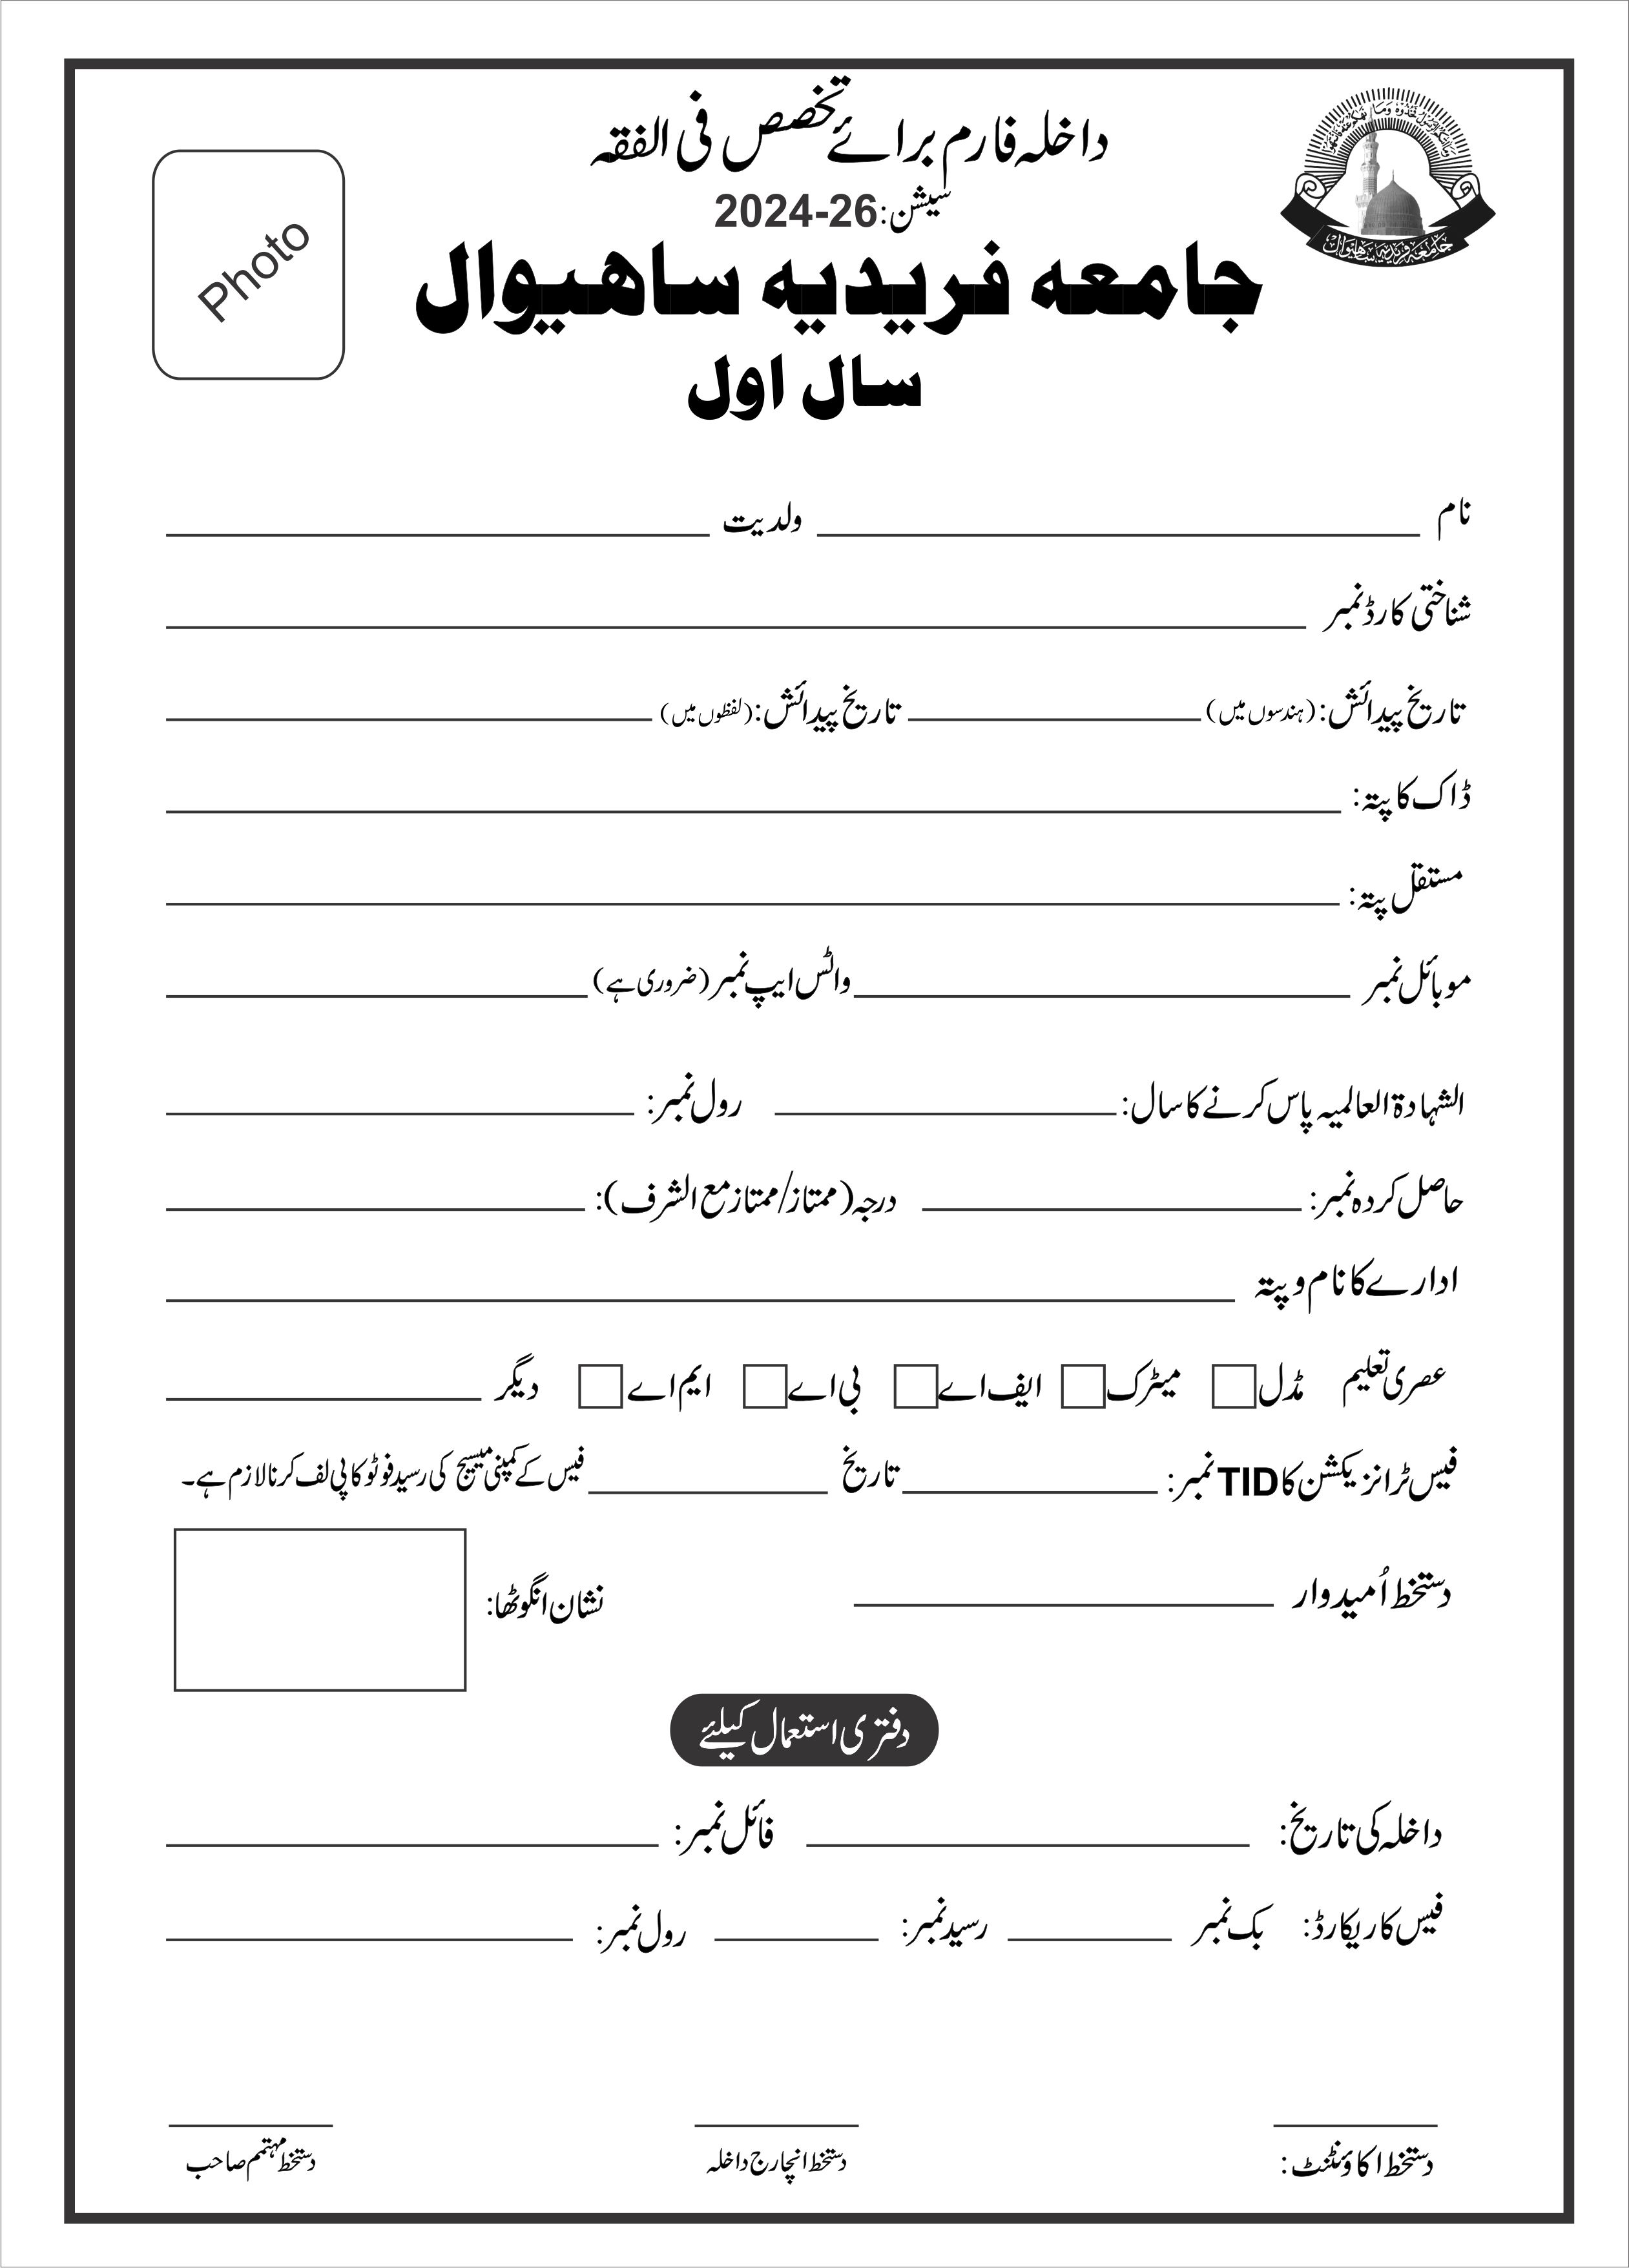 داخلہ فارم برائے تخصص فی الفقہ
سیشن: 2024-26
جامعہ فریدیہ ساھیوال
سال اول
Photo
جامعہ فریدیہ ساہیوال
نام ولدیت
شناختی کارڈ نمبر
تاریخ پیدائش: (ہندسوں میں) تاریخ پیدائش: (لفظوں میں)
ڈاک کا پتہ:
مستقل پتہ:
موبائل نمبر واٹس ایپ نمبر (ضروری ہے)
الشہادۃ العالمیہ پاس کرنے کا سال: رول نمبر:
حاصل کردہ نمبر: درجہ (ممتاز/ممتاز مع الشرف):
ادارے کا نام و پتہ
عصری تعلیم مڈل میٹرک ایف اے بی اے ایم اے دیگر
فیس ٹرانزیکشن کا TID نمبر: تاریخ فیس کے کمپنی میسیج کی رسید فوٹو کاپی لف کرنا لازم ہے۔
دستخط اُمیدوار نشان انگوٹھا:
دفتری استعمال کیلئے
داخلہ کی تاریخ: فائل نمبر:
فیس کا ریکارڈ: بک نمبر رسید نمبر: رول نمبر:
دستخط اکاؤنٹنٹ: دستخط انچارج داخلہ دستخط مہتمم صاحب